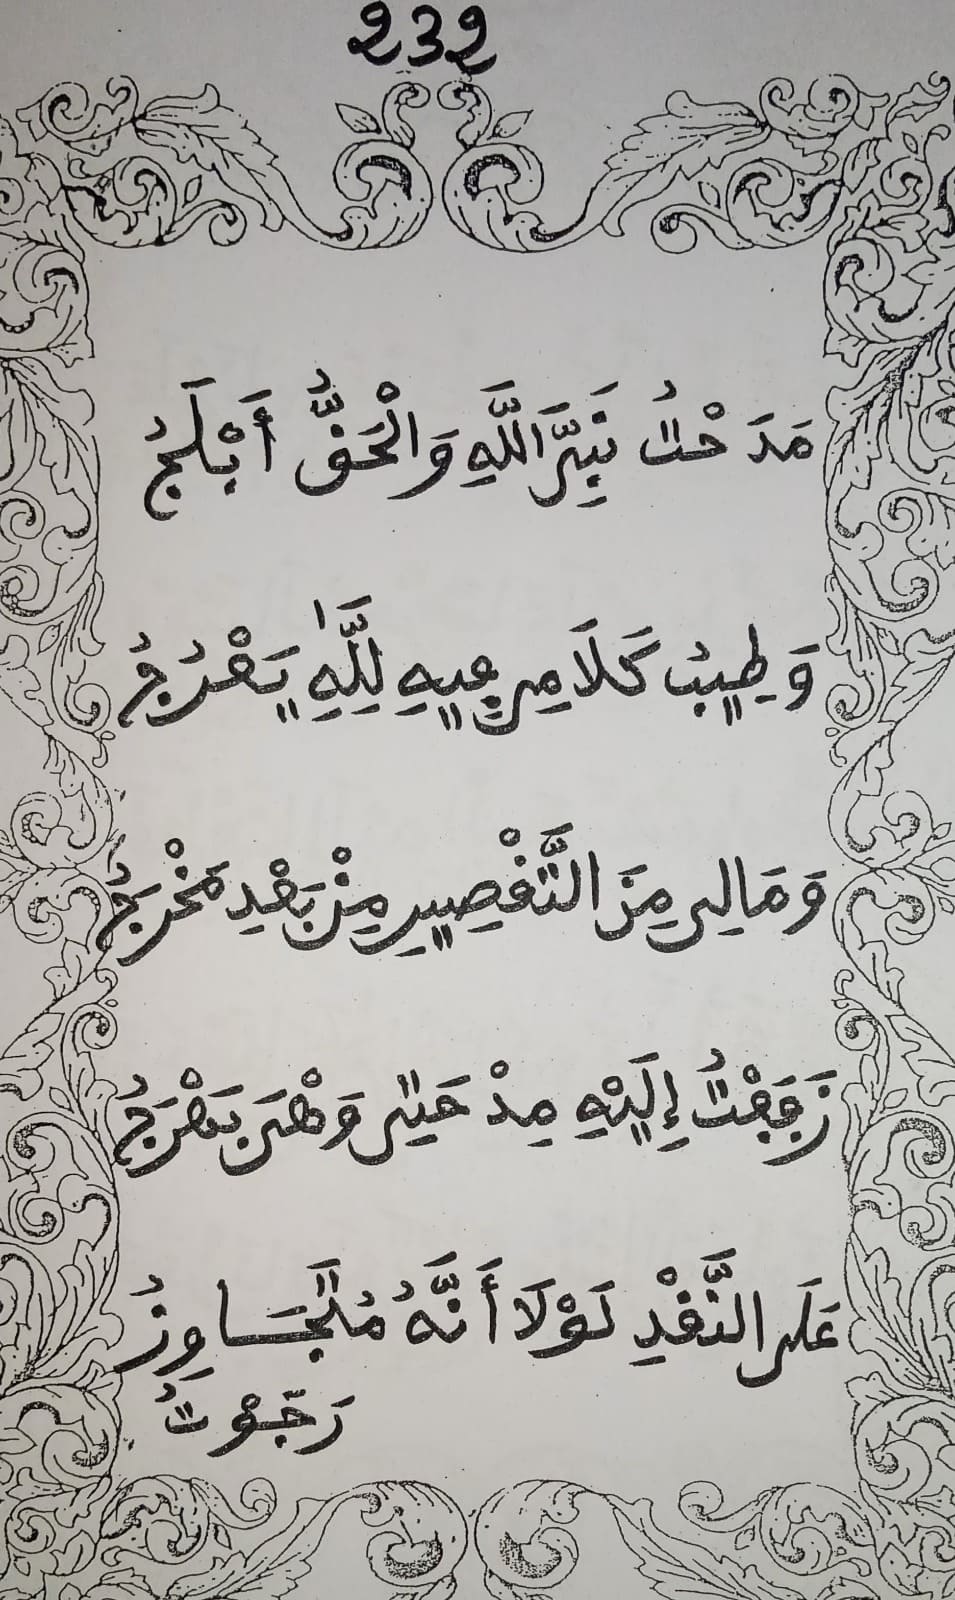 232
مَدَحْتُ نَبِيَّ اللَّهِ وَالْحَقُّ أَبْلَجُ
وَطِيبُ كَلَامِي فِيهِ لِلَّهِ يَعْرُجُ
وَمَالِي مِنَ التَّقْصِيرِ مِنْ بَعْدِ مَخْرَجُ
زَفَفْتُ إِلَيْهِ مِدْحَتِي وَهْيَ بَهْرَجُ
عَلَى النَّقْدِ لَوْلَا أَنَّهُ مُتَجَاوِزُ
رَجَوْتُ